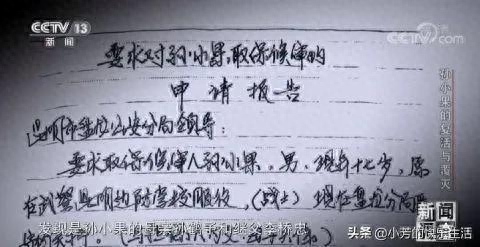 CCTV 13
新闻
CCTV.com
要求对孙小果取保候审的
申请报告
昆明市盘龙公安分局领导:
要求取保候审人孙小果,男,现年十七岁,原
在武警昆明边防学校服役,(战士)现在盘龙分局
孙小果的复活与覆灭
发现是孙小果的母亲孙鹤予和继父李桥忠
新闻
头条 @小芳的快乐生活